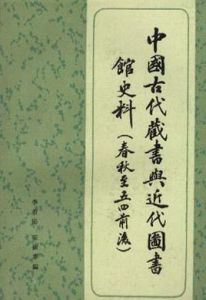 中國古代藏書與近代圖書
館史料（春秋至五四前後）
李希泌 張椒華編